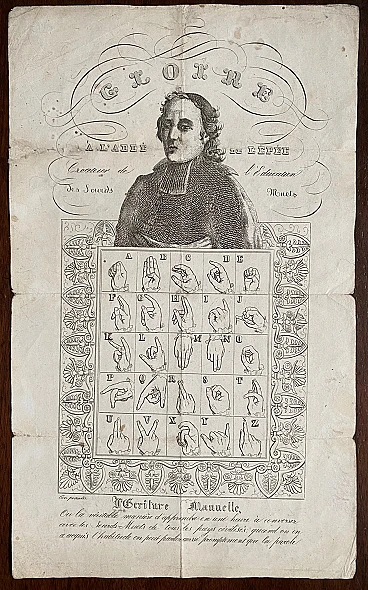 GLOIRE
A L'ABBÉ DE L'ÉPÉE
Créateur de l'Education
des Sourds Muets
A B C D E
F G H I J
K L M N O
P Q R S T
U V X Y Z
L'Ecriture Manuelle,
Ou la véritable manière d'apprendre en une heure à converser
avec les Sourds-Muets de tous les pays civilisés, quand on en
a acquis l'habitude on peut parler aussi promptement que la parole.